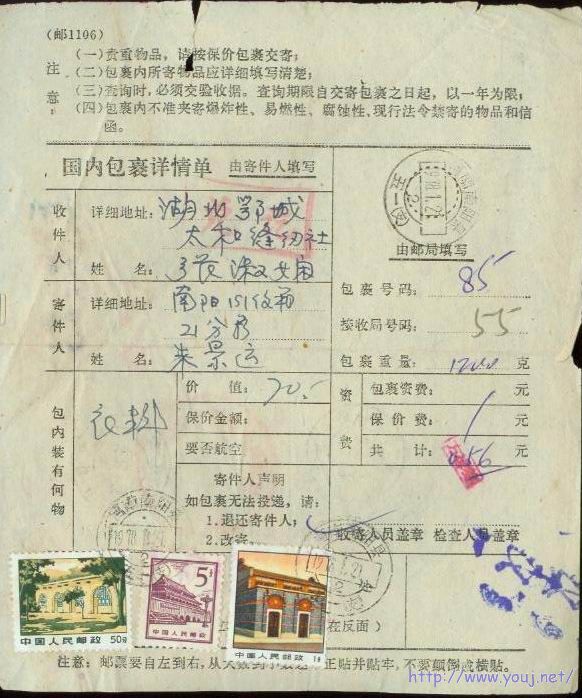 (邮1106)
注意:
(一)贵重物品,请按保价包裹交寄;
(二)包裹内所寄物品应详细填写清楚;
(三)查询时,必须交验收据。查询期限自交寄包裹之日起,以一年为限;
(四)包裹内不准夹寄爆炸性、易燃性、腐蚀性、现行法令禁寄的物品和信函。
国内包裹详情单 由寄件人填写
收件人
详细地址:湖北鄂城
太和缝纫社
姓名:
寄件人
详细地址:南阳151
21分
姓名:朱景运
由邮局填写
包裹号码:85
接收局号码:55
包裹重量:1200克
包内装有何物
衣料
价值:70.-
保价金额:
要否航空
资费
包裹资费: 元
保价费: 元
共计:0.56元
寄件人声明
如包裹无法投递,请:
1.退还寄件人;
2.改寄
收寄人员盖章 检查人员盖章
中国人民邮政 50分
5分
中国人民邮政
中国人民邮政 1分
在反面)
注意:邮票要自左到右,从 正贴并贴牢,不要颠倒或横贴。
http://www.youj.net/